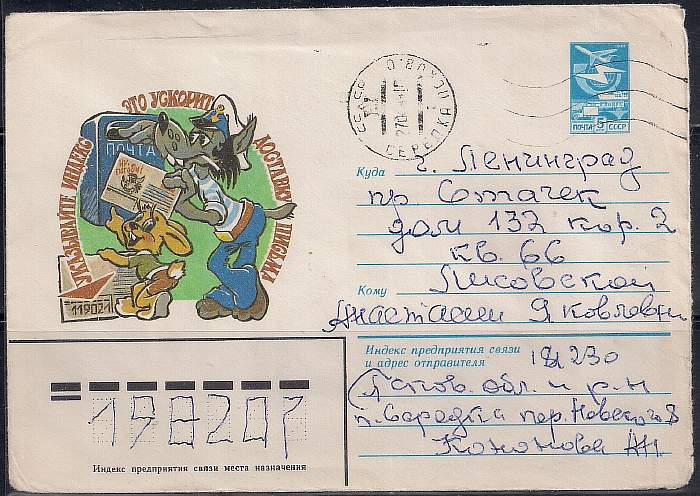 УКАЗЫВАЙТЕ ИНДЕКС ЭТО УСКОРИТ ДОСТАВКУ ПИСЬМА
ПОЧТА
НУ, ПОГОДИ!
119021
СССР
СЕРЕДКА
ПОЧТА 5 СССР
Куда г. Ленинград
пр Стачек
дом 132 кор. 2
кв. 66
Лисовской
Кому
Анастасии Яковлевны
Индекс предприятия связи
и адрес отправителя 181230
обл. и р-н
п. Середка пер. Невского 8
Кононова
198207
Индекс предприятия связи места назначения